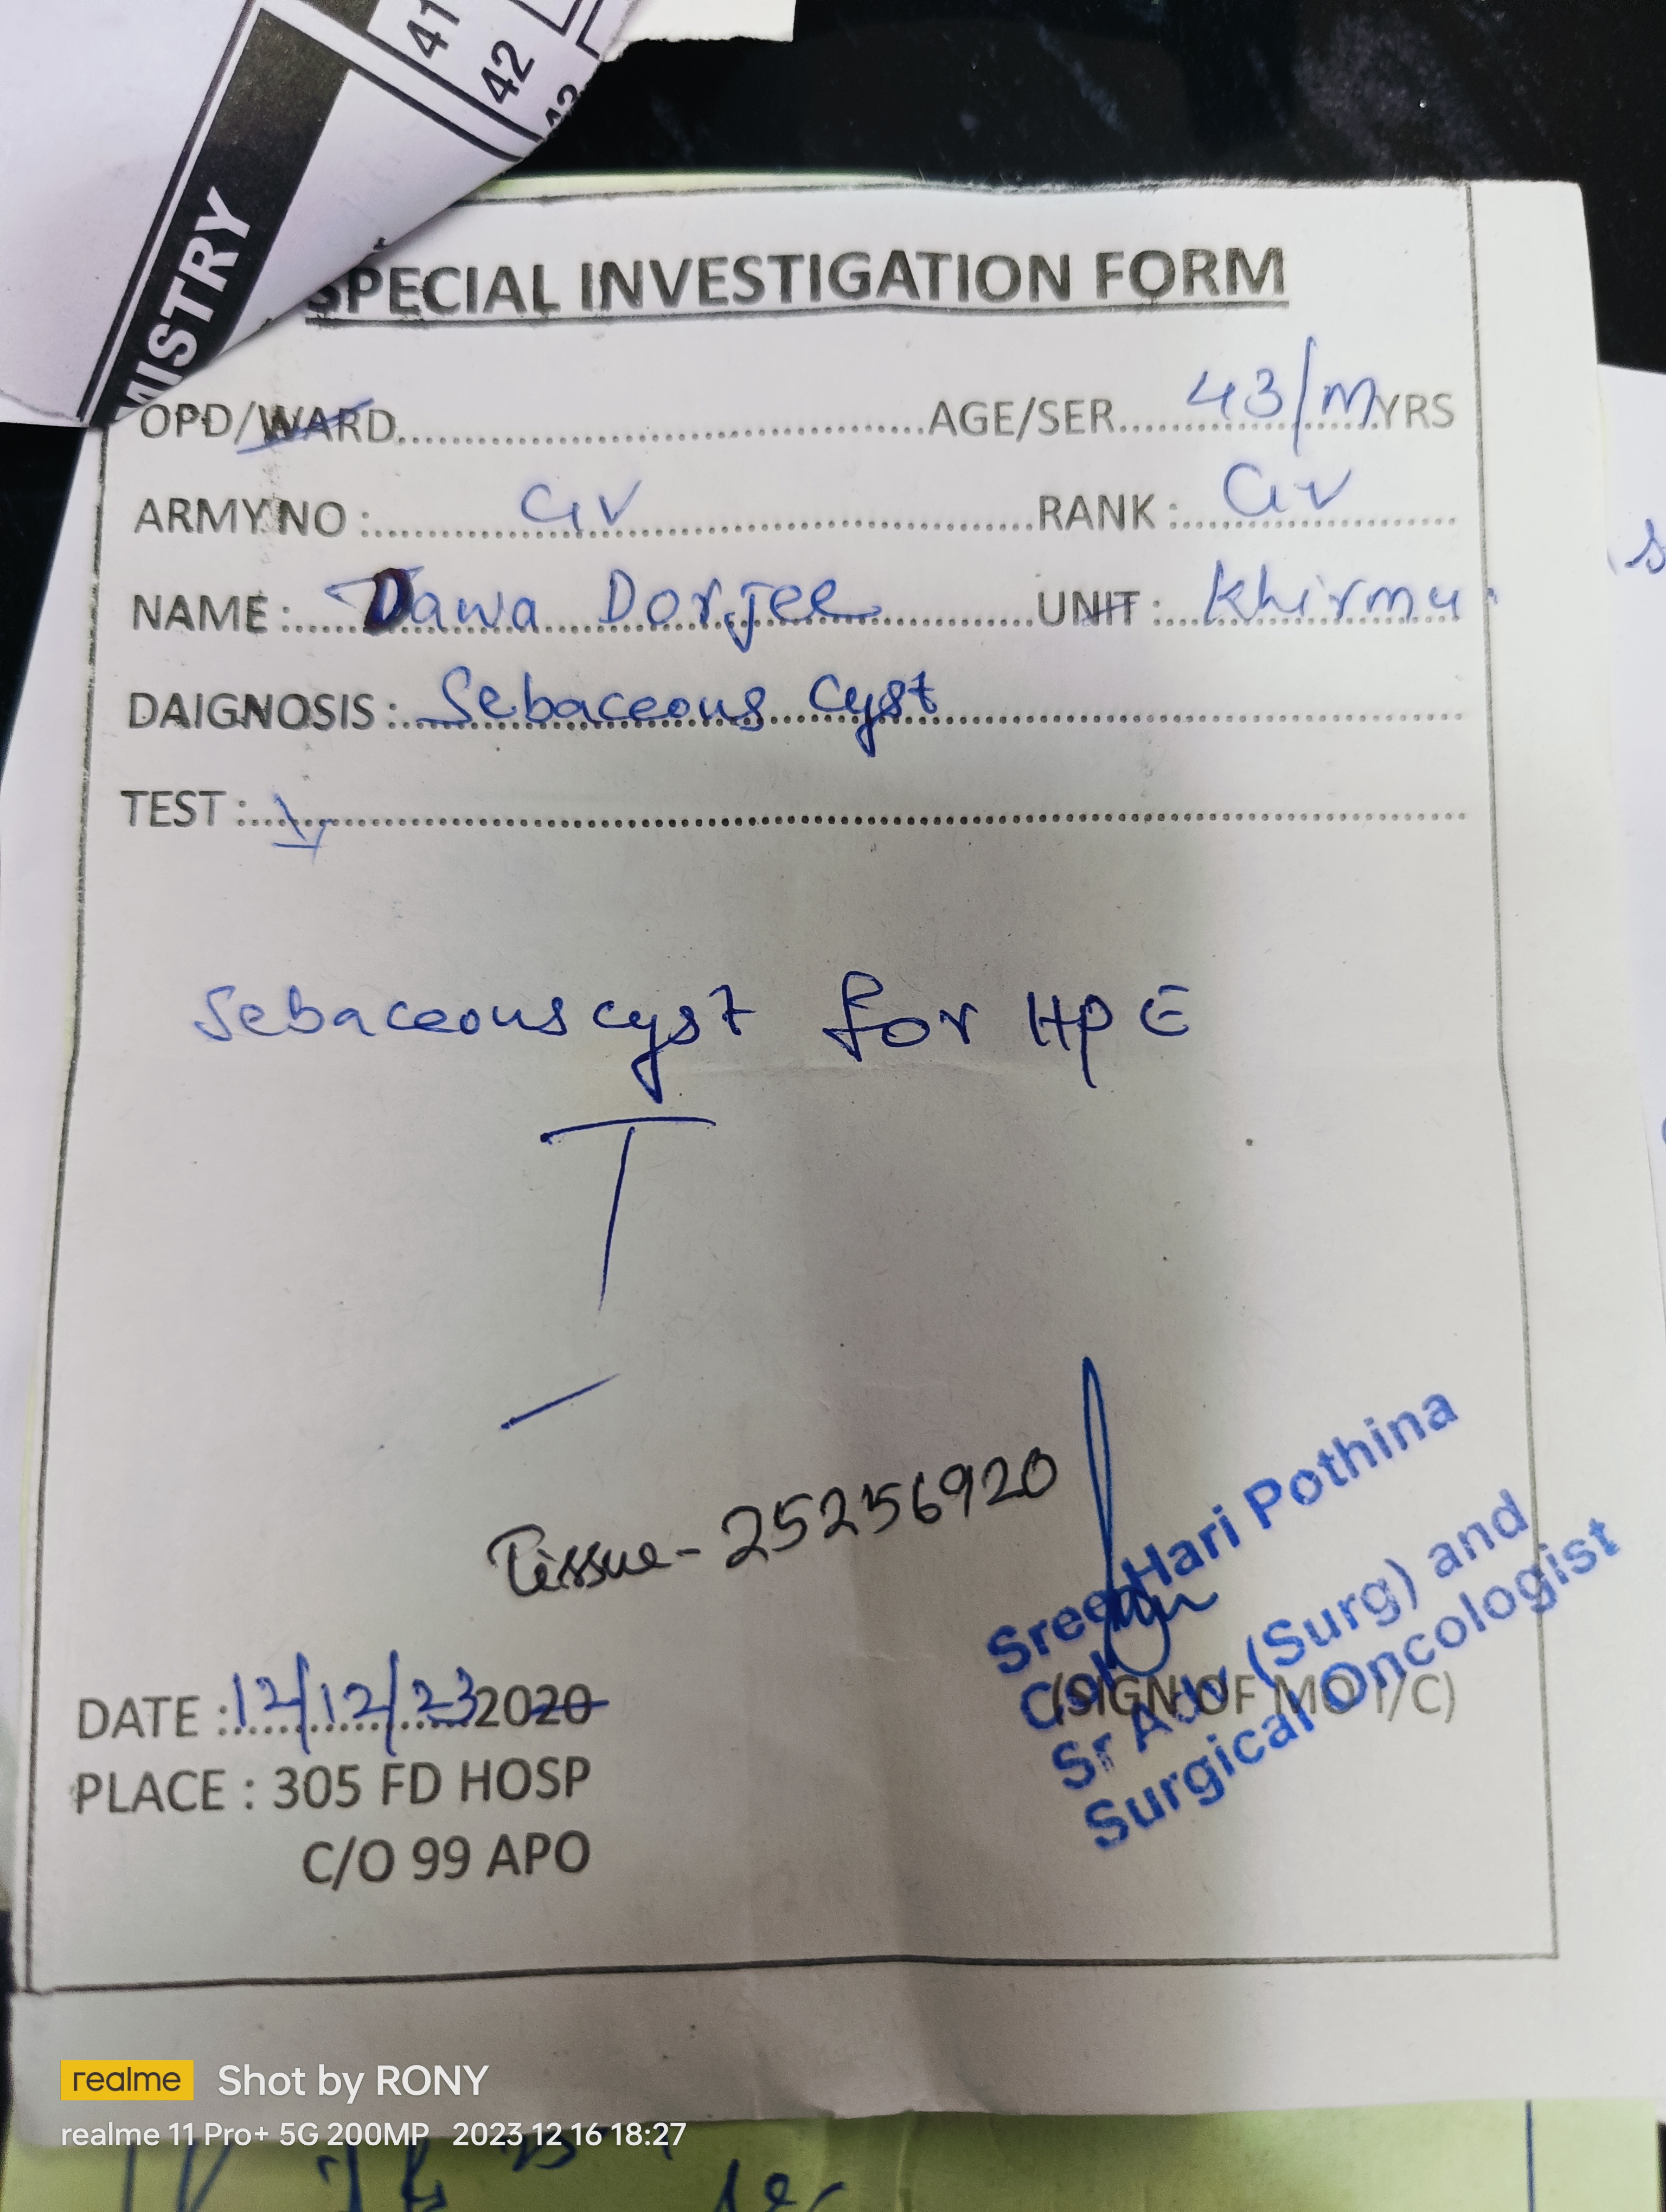 41
42
43
MISTRY
SPECIAL INVESTIGATION FORM
OPD/WARD.......... AGE/SER..... 43/M YRS
ARMY NO :..... Civ ..... RANK :..... Civ
NAME :..... Dawa Dorjee ..... UNIT :..... Khirmu
DAIGNOSIS :..... Sebaceous Cyst
TEST :.....
Sebaceous cyst for HPE
Tissue - 25256920
Sree Hari Pothina
Col
Sr Adv (Surg) and
Surgical Oncologist
(SIGN OF MO I/C)
DATE : 12/12/23 2020
PLACE : 305 FD HOSP
C/O 99 APO
realme Shot by RONY
realme 11 Pro+ 5G 200MP 2023 12 16 18:27